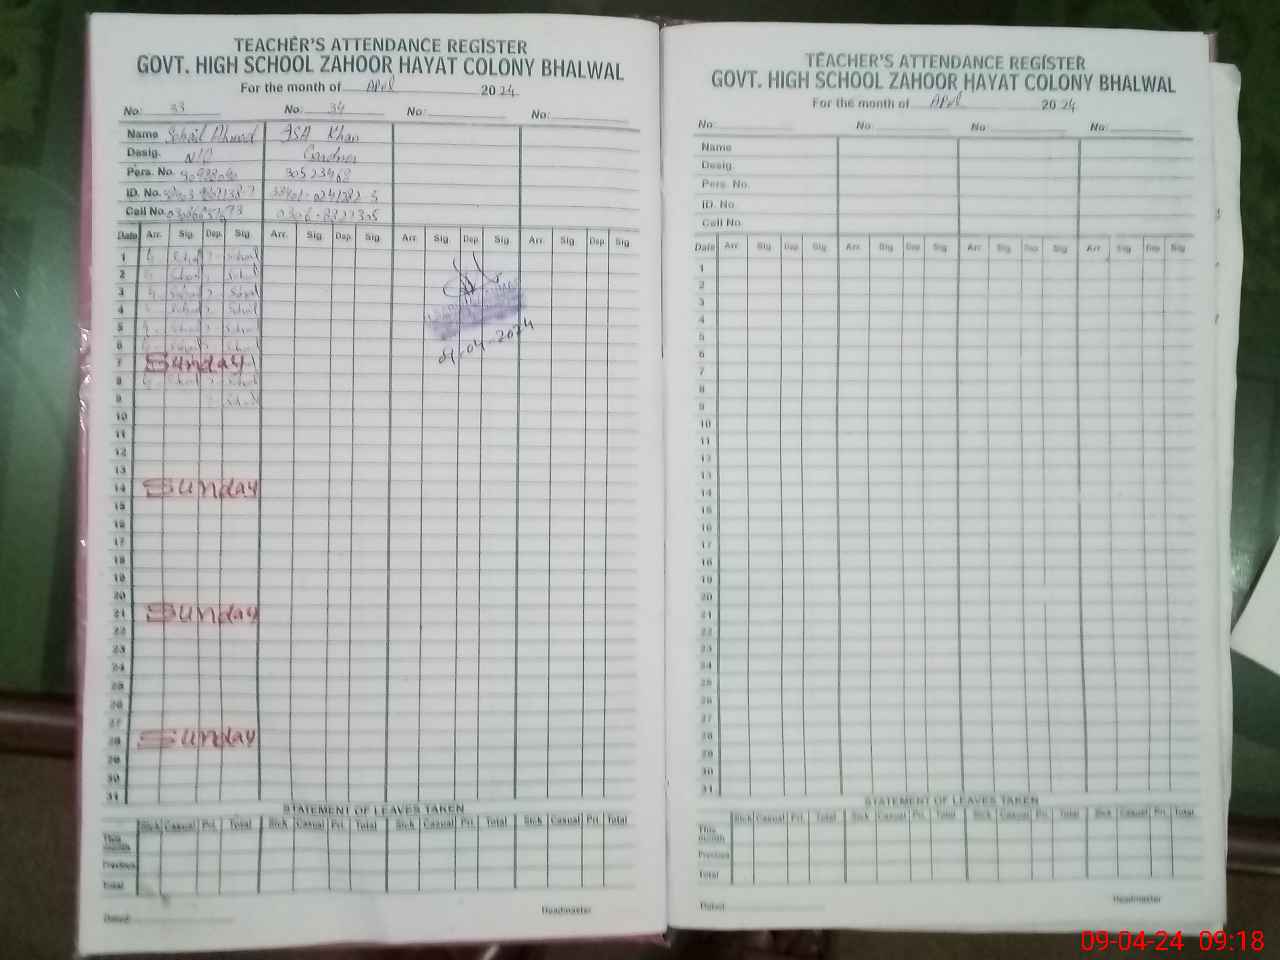 TEACHER'S ATTENDANCE REGISTER
GOVT. HIGH SCHOOL ZAHOOR HAYAT COLONY BHALWAL
For the month of April 2024
No: 33 No: 34 No: No:
Name Sohail Ahmad ISA Khan
Desig. N/Q Gardner
Pers. No. 30523462
ID. No. 38401-0241782-5
Cell No. 0306-8822305
Date Arr. Sig. Dep. Sig. Arr. Sig. Dep. Sig. Arr. Sig Dep Sig. Arr. Sig Dep Sig
1
2
3
4
5
6
7 Sunday
8
9
10
11
12
13
14 Sunday
15
16
17
18
19
20
21 Sunday
22
23
24
25
26
27
28 Sunday
29
30
31
04-2024
STATEMENT OF LEAVES TAKEN
Sick Casual Pri. Total Sick Casual Pri. Total Sick Casual Pri. Total Sick Casual Pri. Total
This month
Previous
Total
Dated: Headmaster
TEACHER'S ATTENDANCE REGISTER
GOVT. HIGH SCHOOL ZAHOOR HAYAT COLONY BHALWAL
For the month of April 2024
No: No: No: No:
Name
Desig.
Pers. No.
ID. No.
Cell No.
Date Arr Sig Dep Sig Arr. Sig Dep Sig Arr. Sig Dep Sig Arr Sig Dep Sig
1
2
3
4
5
6
7
8
9
10
11
12
13
14
15
16
17
18
19
20
21
22
23
24
25
26
27
28
29
30
31
STATEMENT OF LEAVES TAKEN
Sick Casual Pri. Total Sick Casual Pri. Total Sick Casual Pri. Total Sick Casual Pri. Total
This month
Previous
Total
Dated: Headmaster
09-04-24 09:18